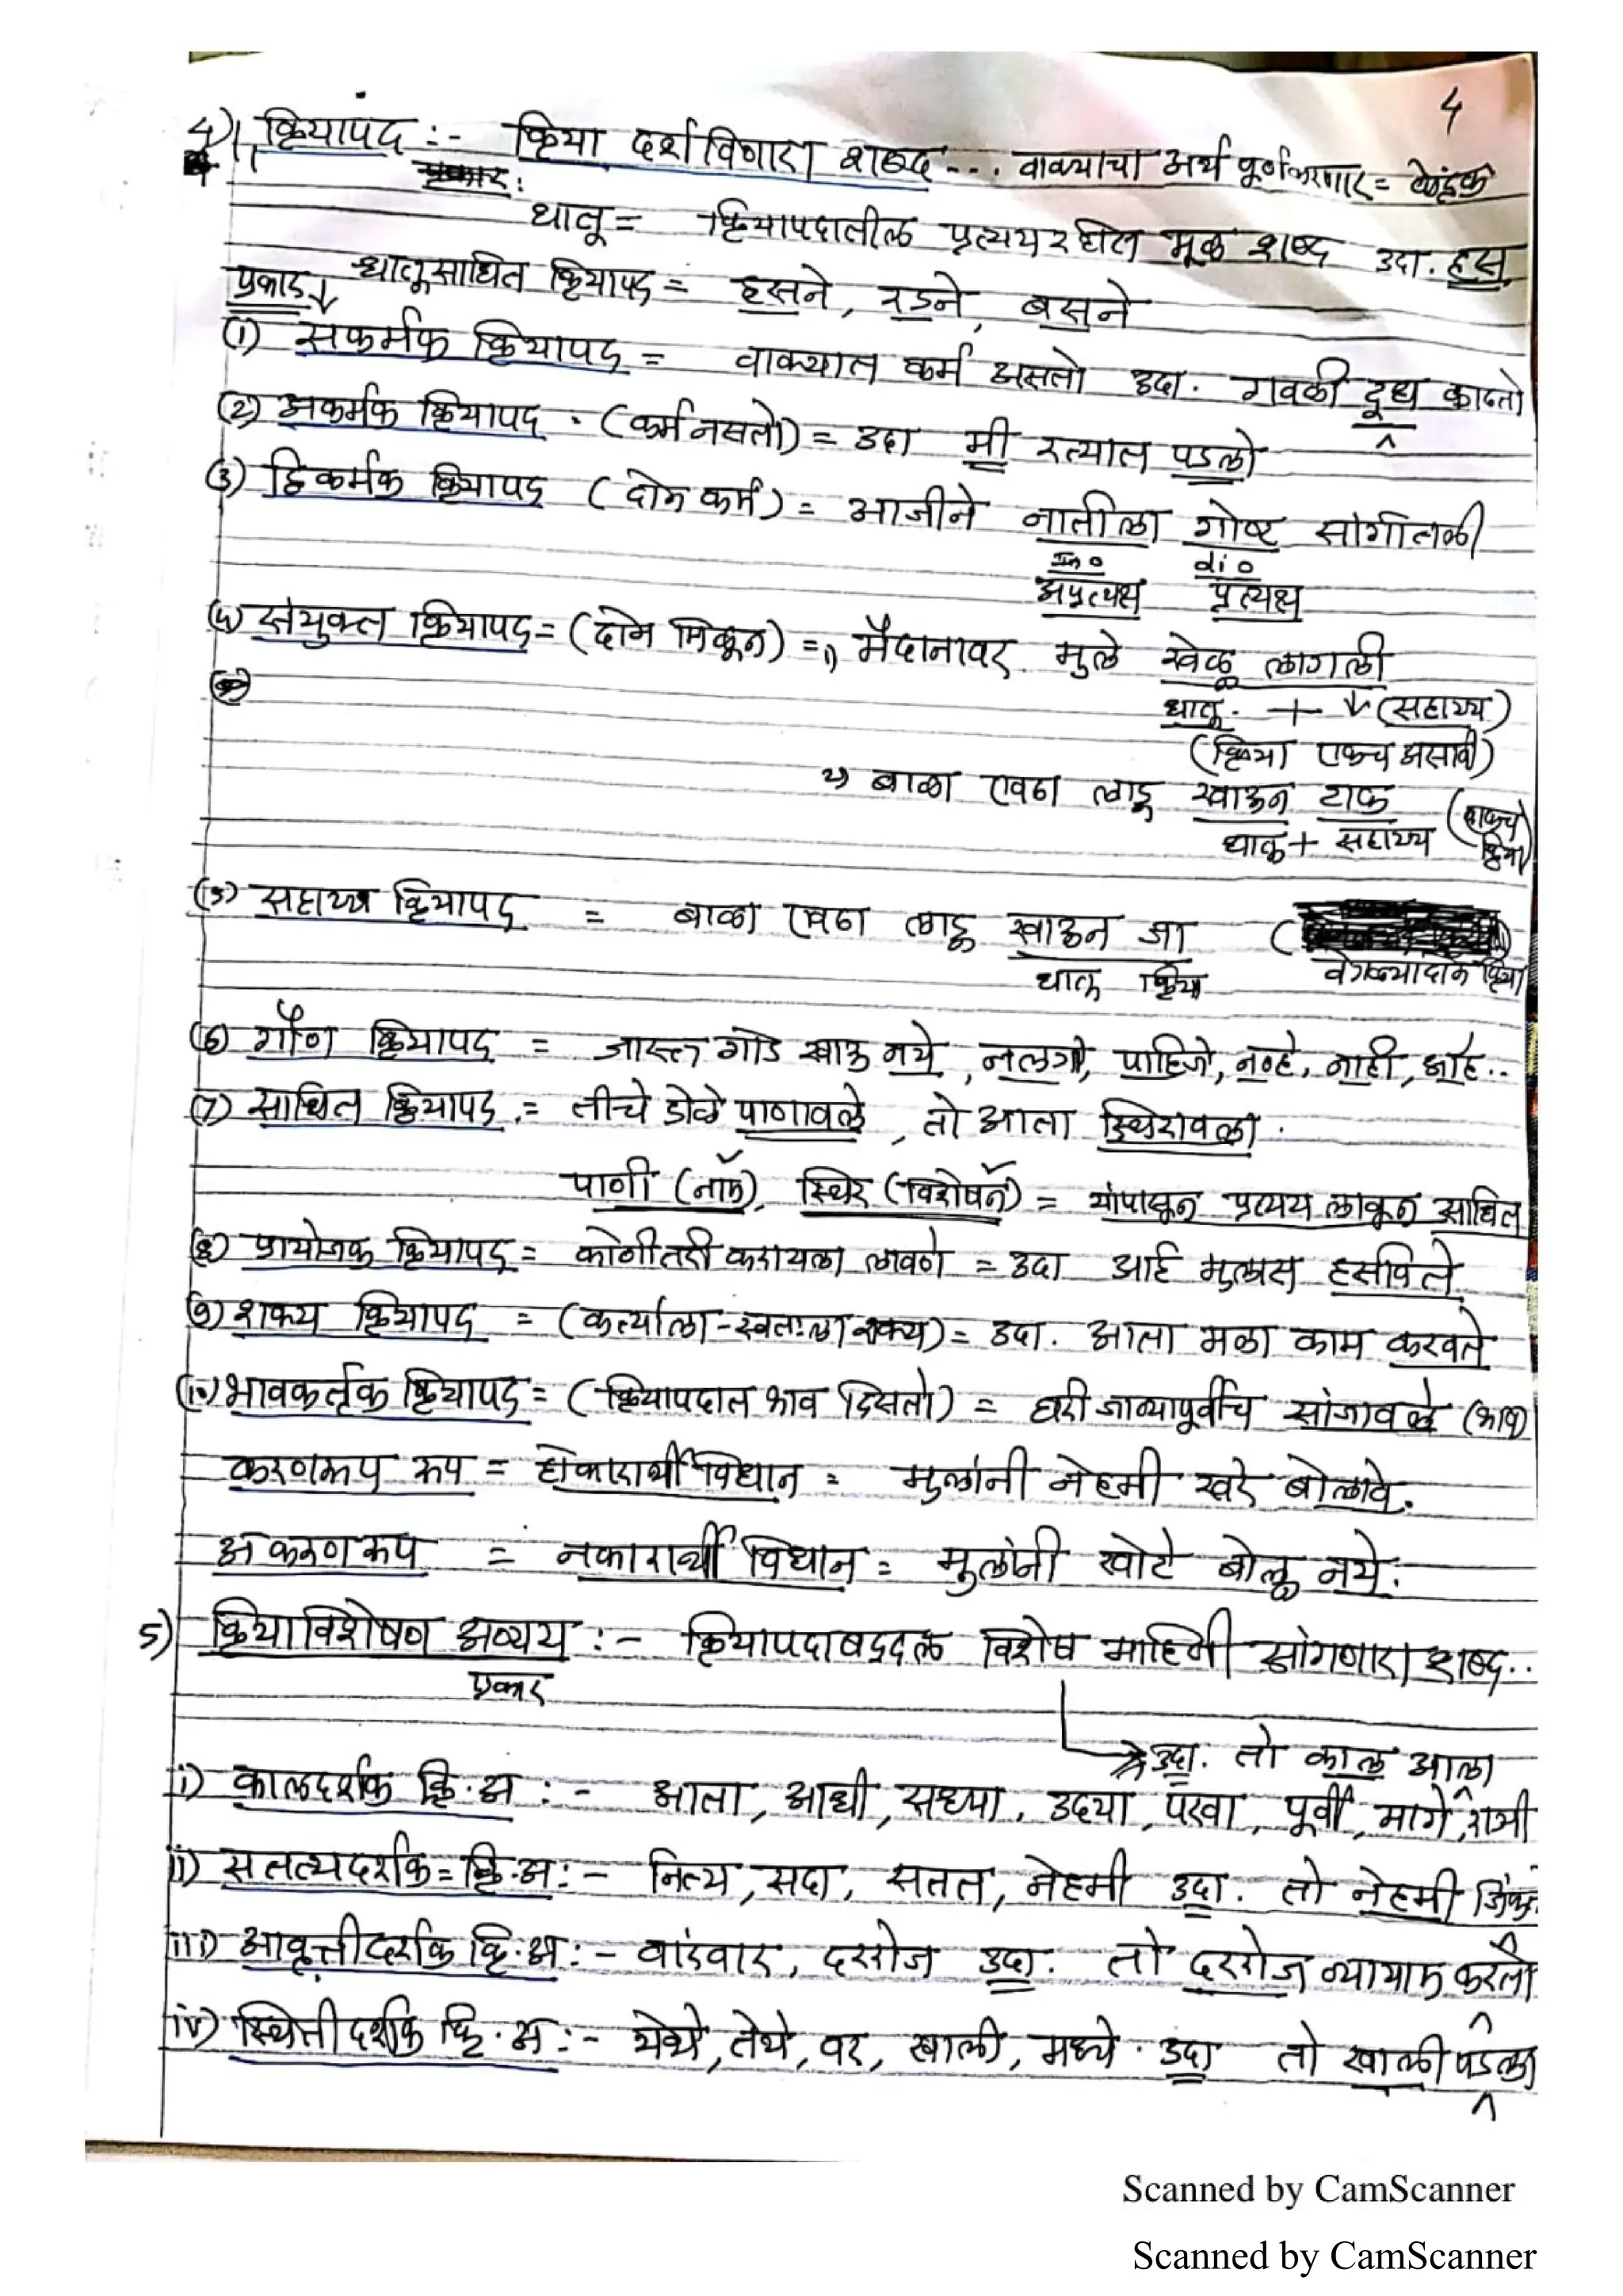 4
4) क्रियापद :- क्रिया दर्शविणारा शब्द... वाक्याचा अर्थ पूर्ण करणारा =
धातू = क्रियापदातील प्रत्यय रहीत मूळ शब्द उदा. हस
धातूसाधित क्रियापद = हसने, रडने, बसने
प्रकार ↓
(1) सकर्मक क्रियापद = वाक्यात कर्म असतो उदा. गवळी दूध काढतो
(2) अकर्मक क्रियापद . (कर्म नसतो) = उदा मी रस्त्यात पडलो
(3) द्विकर्मक क्रियापद (दोन कर्म) = आजीने नातीला गोष्ट सांगीतली
In o di o
अप्रत्यक्ष प्रत्यक्ष
(4) संयुक्त क्रियापद = (दोन मिळून) = 1) मैदानावर मुले खेळू लागली
धातू. + ↓ (सहाय्य)
(क्रिया एकच असावी)
2) बाळा एवढा लाडू खाऊन टाक (एकच क्रिया)
धातू + सहाय्य
(5) सहाय्य क्रियापद = बाळा एवढा लाडू खाऊन जा (
धातू क्रिया वेगळ्या दोन क्रिया
(6) गौण क्रियापद = जास्त गोड खाऊ नये, नलगे, पाहिजे, नव्हे, नाही, आहे..
(7) साधित क्रियापद = तीचे डोळे पाणावले, तो आता स्थिरावला.
पाणी (नाम), स्थिर (विशेषन) = यांपासून प्रत्यय लावून साधित
(8) प्रायोजक क्रियापद = कोणीतरी करायला लावणे = उदा आई मुलास हसविते
(9) शक्य क्रियापद = (कर्त्याला - स्वतःला शक्य) = उदा. आता मला काम करवते
(10) भावकर्तृक क्रियापद = (क्रियापदात भाव दिसतो) = घरी जाण्यापूर्वीच सांजावले (भाव)
करणरूप रूप = होकारार्थी विधान = मुलांनी नेहमी खरे बोलावे.
अकरणरूप = नकारार्थी विधान = मुलांनी खोटे बोलू नये.
5) क्रियाविशेषण अव्यय :- क्रियापदाबद्दल विशेष माहिती सांगणारा शब्द..
प्रकार
→ उदा. तो काल आला
i) कालदर्शक क्रि.अ :- आता, आधी, सध्या, उदया, परवा, पूर्वी, मागे, रात्री
ii) सतत्यदर्शक = क्रि.अ :- नित्य, सदा, सतत, नेहमी उदा. तो नेहमी
iii) आवृत्तीदर्शक क्रि.अ :- वारंवार, दररोज उदा. तो दररोज व्यायाम करतो
iv) स्थितीदर्शक क्रि.अ :- येथे, तेथे, वर, खाली, मध्ये. उदा तो खाली पडला
Scanned by CamScanner
Scanned by CamScanner